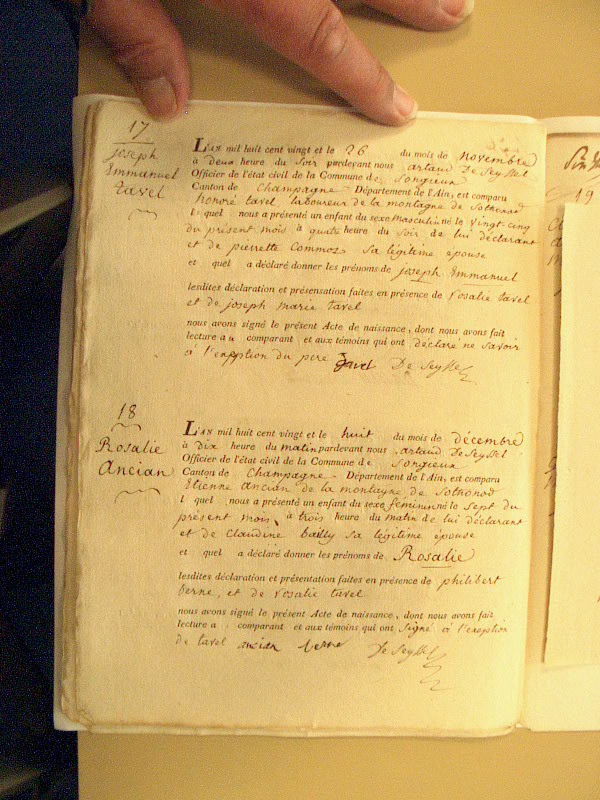 17
joseph
Emmanuel
tavel
L'AN mil huit cent vingt et le 26 du mois de novembre
à deux heure du soir pardevant nous artaud De Seyssel
Officier de l'état civil de la Commune de Songieux
Canton de Champagne Département de l'Ain, est comparu
honoré tavel laboureur de la montagne de Sothonod
lequel nous a présenté un enfant du sexe masculin né le vingt cinq
du présent mois à quatre heure du soir de lui déclarant
et de pierrette Commoz sa légitime épouse
et quel a déclaré donner les prénoms de joseph Emmanuel
lesdites déclaration et présensation faites en présence de rosalie tavel
et de joseph marie tavel
nous avons signé le présent Acte de naissance, dont nous avons fait
lecture a comparant et aux témoins qui ont déclaré ne savoir
à l'exeption du pere tavel De Seyssel
18
Rosalie
Ancian
L'AN mil huit cent vingt et le huit du mois de décembre
à dix heure du matin pardevant nous artaud de Seyssel
Officier de l'état civil de la Commune de Songieux
Canton de Champagne Département de l'Ain, est comparu
Etienne ancian de la montagne de Sothonod
l quel nous a présenté un enfant du sexe féminin né le sept du
présent mois à trois heure du matin de lui déclarant
et de Claudine bailly sa légitime épouse
et quel a déclaré donner les prénoms de Rosalie
lesdites déclaration et présentation faites en présence de philibert
berne, et de rosalie tavel
nous avons signé le présent Acte de naissance, dont nous avons fait
lecture a comparant et aux témoins qui ont signé à l'exeption
de tavel ancian berne De Seyssel
19